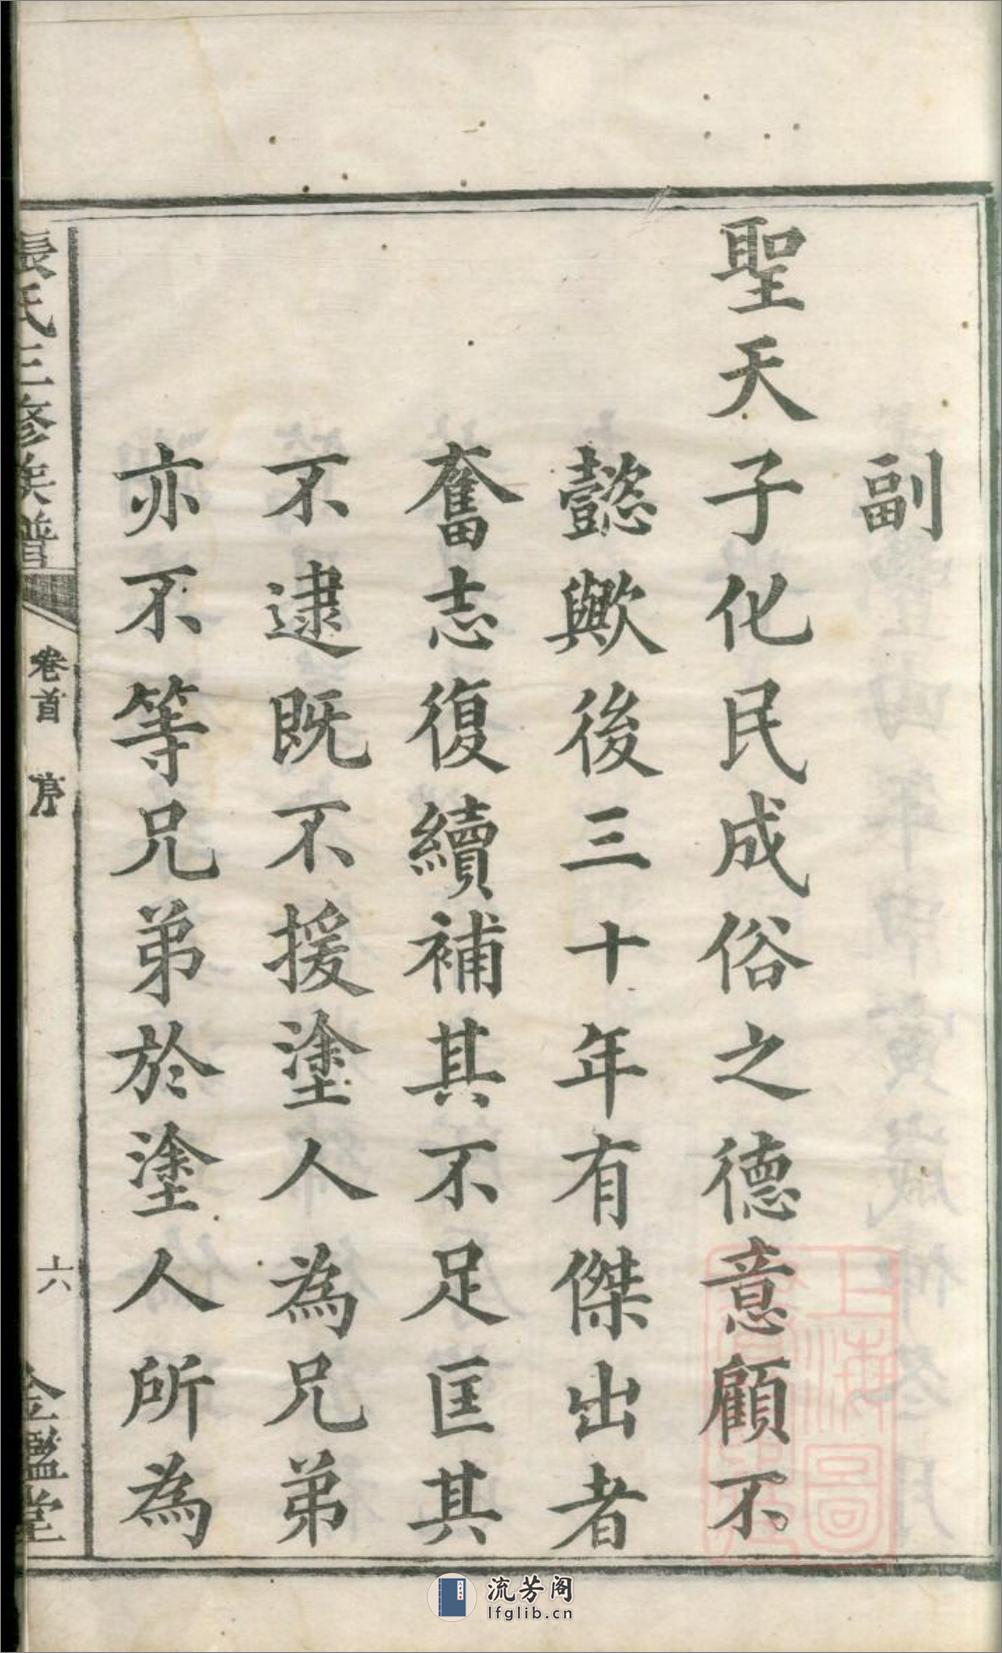 副
聖天子化民成俗之德意顧不
懿歟後三十年有傑出者
奮志復續補其不足匡其
不逮既不援塗人為兄弟
亦不等兄弟於塗人所為
張氏三修族譜
卷首
序
六
金鑑堂
上海圖
流芳阁
lfglib.cn